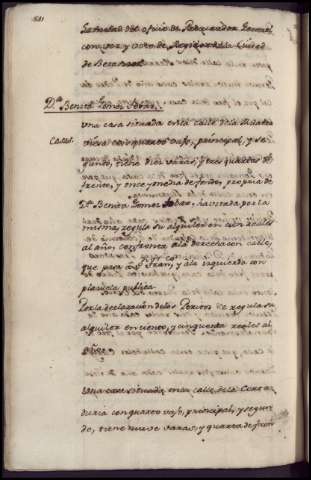 la mitad del oficio de Procurador General
con voz y voto de Regidor de la Ciudad
de Betanzos
D.ª Benita Gomez Tobar
Casas. una casa situada en la calle de la
con quarto vajo, principal, y se-
gundo, tiene diez varas, y tres quartas de
frente, y once y media de fondo, propria de
D.ª Benita Gomez Tobar, havitada por la
misma regula su alquiler en cien reales
al año, confronta a la derecha con calle,
que para a S.n Fran.co y a la izquierda con
plazuela publica
Por la declaracion de los Peritos se regula su
alquiler en ciento, y cinquenta reales al
año
Una casa situada en la calle de la Corta-
duria con quarto vajo, principal, y segun-
do, tiene nueve varas, y quarta de fren-